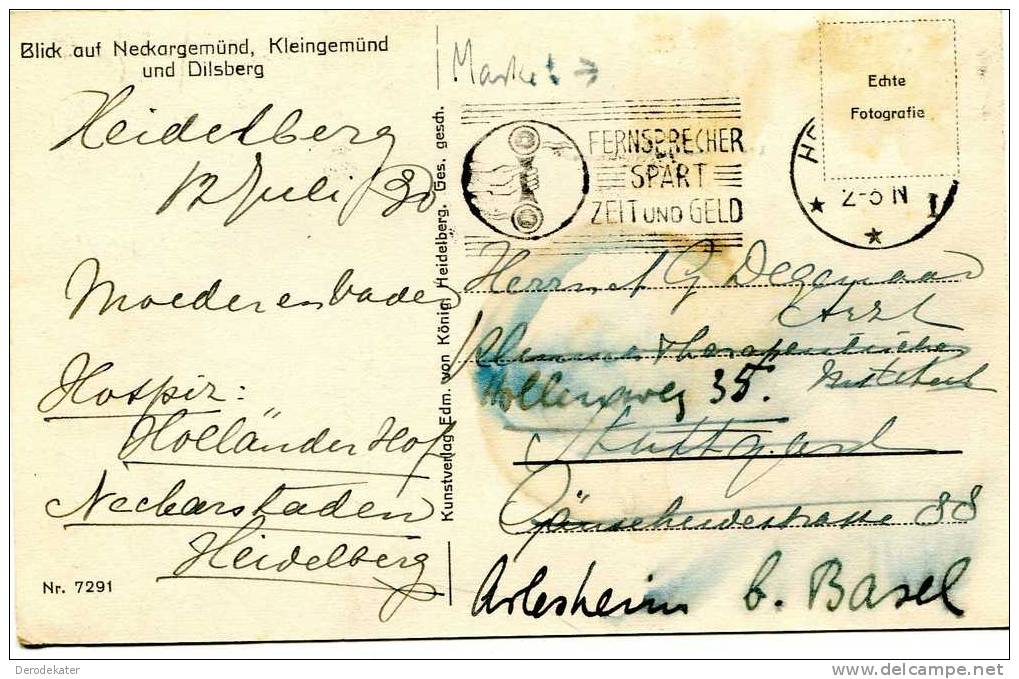 Blick auf Neckargemünd, Kleingemünd
und Dilsberg
Heidelberg
12 Juli 30
Moeder en Vader
Hospiz:
Holländer Hof
Neckarstaden
Heidelberg
Nr. 7291
Kunstverlag Edm. von König, Heidelberg. Ges. gesch.
Marke! →
FERNSPRECHER
SPART
ZEIT UND GELD
Echte
Fotografie
2-3 N
Herrn G Degenaar
Arzt
Therapeutisches
35.
Stuttgard
Gänseheidestrasse 88
Arlesheim b. Basel
Derodekater
www.delcampe.net